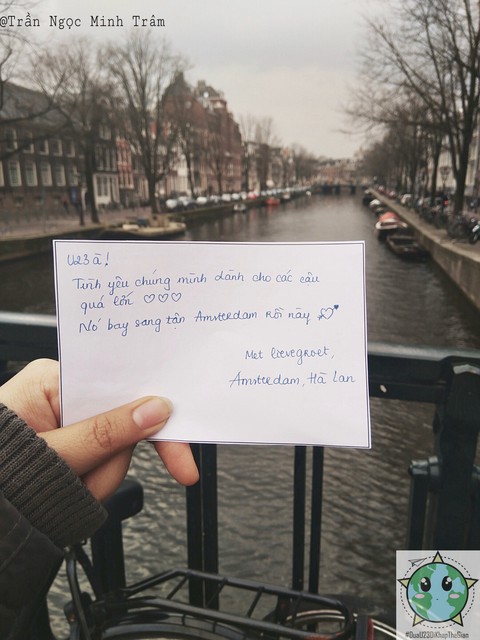 @Trần Ngọc Minh Trâm
U23 à!
Tình yêu chúng mình dành cho các cậu
quá lớn ♡♡♡
Nó bay sang tận Amsterdam rồi này
Met lievegroet,
Amsterdam, Hà Lan
#DuaU23DiKhapTheGian